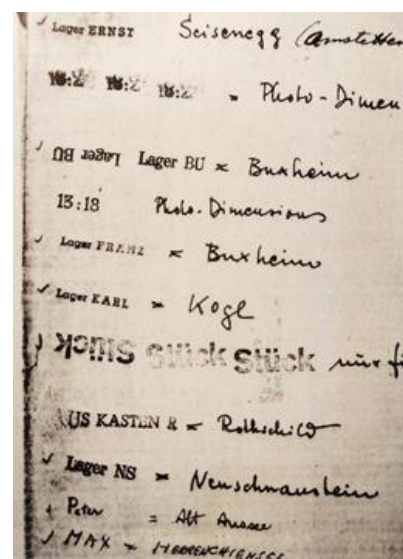 ✓ Lager ERNST Seisenegg (Amstetten
18:2 18:2 18:2 = Photo-Dimen
✓ Lager BU Lager BU = Buxheim
13:18 Photo-Dimensions
✓ Lager FRANZ = Buxheim
✓ Lager KARL = Kogl
Stück Stück Stück nur fü
US KASTEN R = Rothschild
✓ Lager NS = Neuschwanstein
Peter = Alt Aussee
✓ MAX = HERRENCHIEMSEE